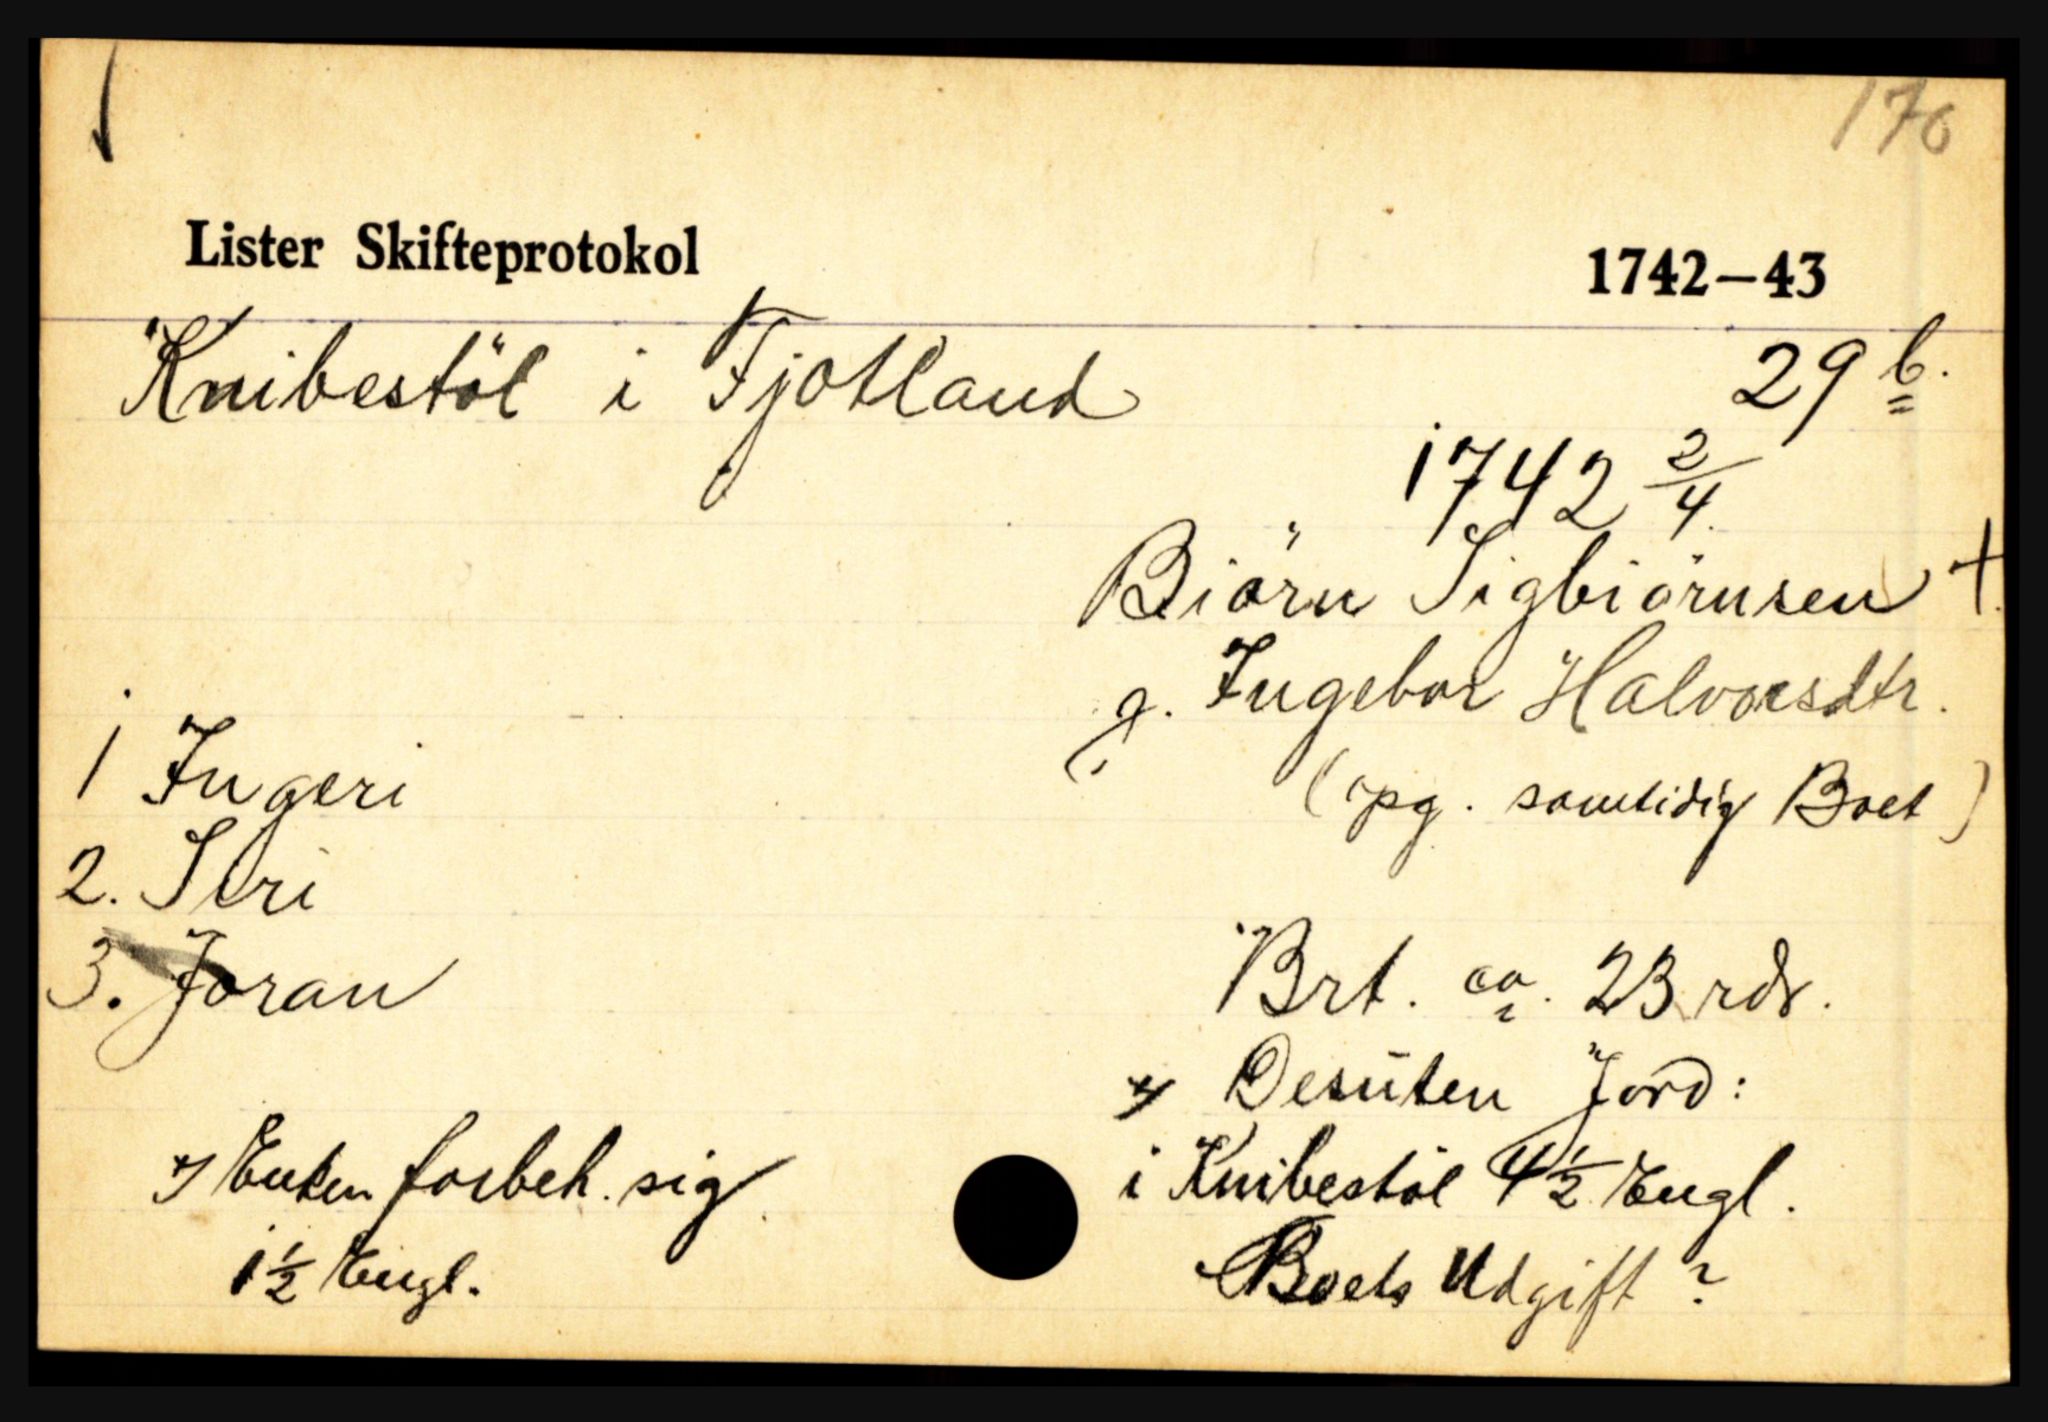 170
Lister Skifteprotokol 1742–43
Knibestöl i Fjotland 29 b.
1742 2/4.
Biörn Sigbiörnsen †.
g. Ingebor Halvorsdtr.
(opg. samtidig Boet)
1 Ingeri
2. Siri
3. Joran
Brt. ca. 23 rdr.
*) Desuten Jord:
i Knibestöl 4 1/2 Engl.
Boets Udgift?
*) Enken forbeh. sig
1 1/2 Engl.